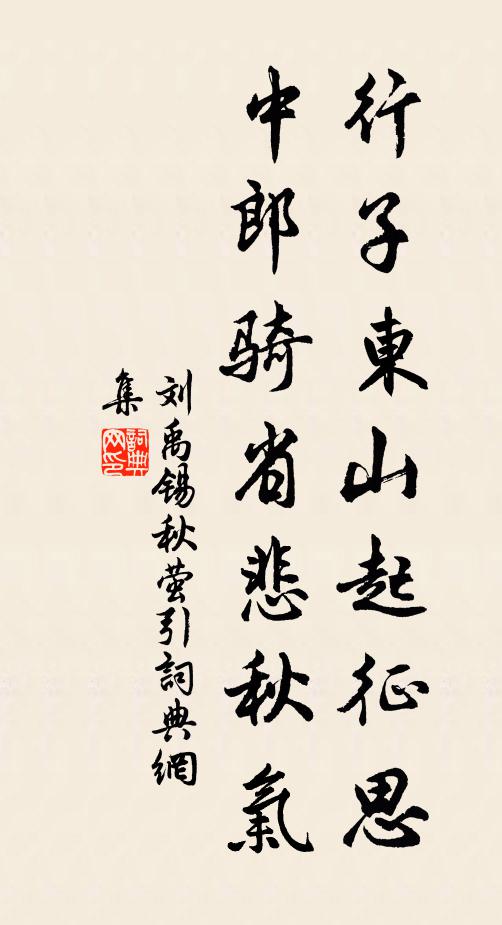 行子東山起征思
中郎騎省悲秋氣
刘禹锡秋萤引詞典網
集
詞典
网印